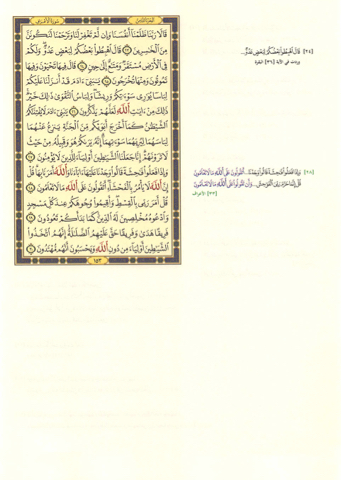 سورة الأعراف
الجزء الثامن
قَالَا رَبَّنَا ظَلَمْنَا أَنفُسَنَا وَإِن لَّمْ تَغْفِرْ لَنَا وَتَرْحَمْنَا لَنَكُونَنَّ
مِنَ الْخَاسِرِينَ ٢٣ قَالَ اهْبِطُوا بَعْضُكُمْ لِبَعْضٍ عَدُوٌّ وَلَكُمْ
فِي الْأَرْضِ مُسْتَقَرٌّ وَمَتَاعٌ إِلَىٰ حِينٍ ٢٤ قَالَ فِيهَا تَحْيَوْنَ وَفِيهَا
تَمُوتُونَ وَمِنْهَا تُخْرَجُونَ ٢٥ يَا بَنِي آدَمَ قَدْ أَنزَلْنَا عَلَيْكُمْ
لِبَاسًا يُوَارِي سَوْآتِكُمْ وَرِيشًا وَلِبَاسُ التَّقْوَىٰ ذَٰلِكَ خَيْرٌ
ذَٰلِكَ مِنْ آيَاتِ اللَّهِ لَعَلَّهُمْ يَذَّكَّرُونَ ٢٦ يَا بَنِي آدَمَ لَا يَفْتِنَنَّكُمُ
الشَّيْطَانُ كَمَا أَخْرَجَ أَبَوَيْكُم مِّنَ الْجَنَّةِ يَنزِعُ عَنْهُمَا
لِبَاسَهُمَا لِيُرِيَهُمَا سَوْآتِهِمَا إِنَّهُ يَرَاكُمْ هُوَ وَقَبِيلُهُ مِنْ حَيْثُ
لَا تَرَوْنَهُمْ إِنَّا جَعَلْنَا الشَّيَاطِينَ أَوْلِيَاءَ لِلَّذِينَ لَا يُؤْمِنُونَ ٢٧
وَإِذَا فَعَلُوا فَاحِشَةً قَالُوا وَجَدْنَا عَلَيْهَا آبَاءَنَا وَاللَّهُ أَمَرَنَا بِهَا قُلْ
إِنَّ اللَّهَ لَا يَأْمُرُ بِالْفَحْشَاءِ أَتَقُولُونَ عَلَى اللَّهِ مَا لَا تَعْلَمُونَ ٢٨
قُلْ أَمَرَ رَبِّي بِالْقِسْطِ وَأَقِيمُوا وُجُوهَكُمْ عِندَ كُلِّ مَسْجِدٍ
وَادْعُوهُ مُخْلِصِينَ لَهُ الدِّينَ كَمَا بَدَأَكُمْ تَعُودُونَ ٢٩
فَرِيقًا هَدَىٰ وَفَرِيقًا حَقَّ عَلَيْهِمُ الضَّلَالَةُ إِنَّهُمُ اتَّخَذُوا
الشَّيَاطِينَ أَوْلِيَاءَ مِن دُونِ اللَّهِ وَيَحْسَبُونَ أَنَّهُم مُّهْتَدُونَ ٣٠
١٥٣
[٢٤] قَالَ اهْبِطُوا بَعْضُكُمْ لِبَعْضٍ عَدُوٌّ...
[٣٦] البقرة
[٢٨] وَإِذَا فَعَلُوا فَاحِشَةً قَالُوا وَجَدْنَا... أَتَقُولُونَ عَلَى اللَّهِ مَا لَا تَعْلَمُونَ
قُلْ إِنَّمَا حَرَّمَ رَبِّيَ الْفَوَاحِشَ... وَأَن تَقُولُوا عَلَى اللَّهِ مَا لَا تَعْلَمُونَ
[٣٣] الأعراف